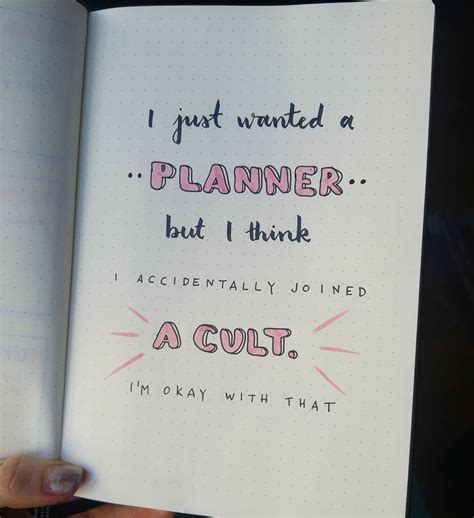 I just wanted a
..PLANNER..
but I think
I ACCIDENTALLY JOINED
A CULT.
I'M OKAY WITH THAT